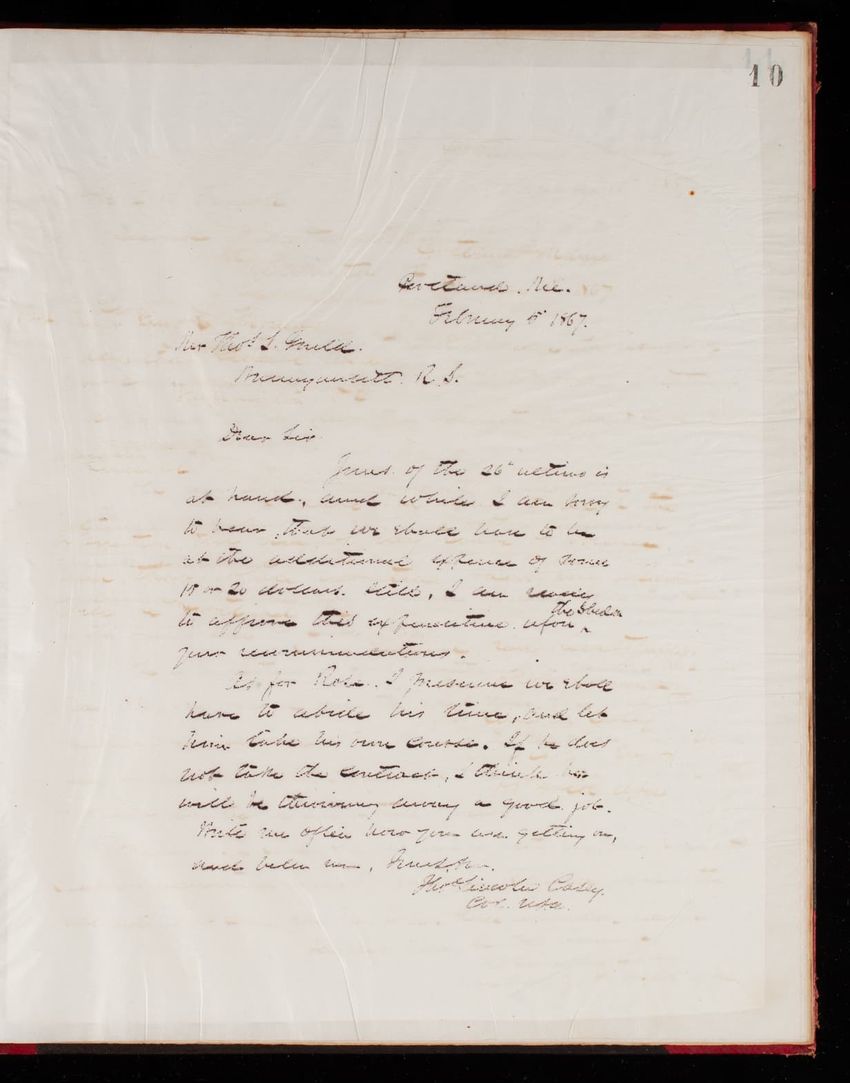 10
Portland, Me.
February 5" 1867.
Mr Thos S. Guild.
Narragansett. R. I.
Dear Sir.
Yours of the 26" ultimo is
at hand, and while I am sorry
to hear, that we shall have to be
at the additional expense of some
15 or 20 dollars. still, I am ready
to approve this expenditure upon
your recommendations.
As for Rose. I presume we shall
have to abide his time, and let
him take his own course. If he does
not take the contract, I think he
will be throwing away a good job.
Write me often how you are getting on,
and believe me, Yours, &c.
Thos Lincoln Casey.
Col. USA.